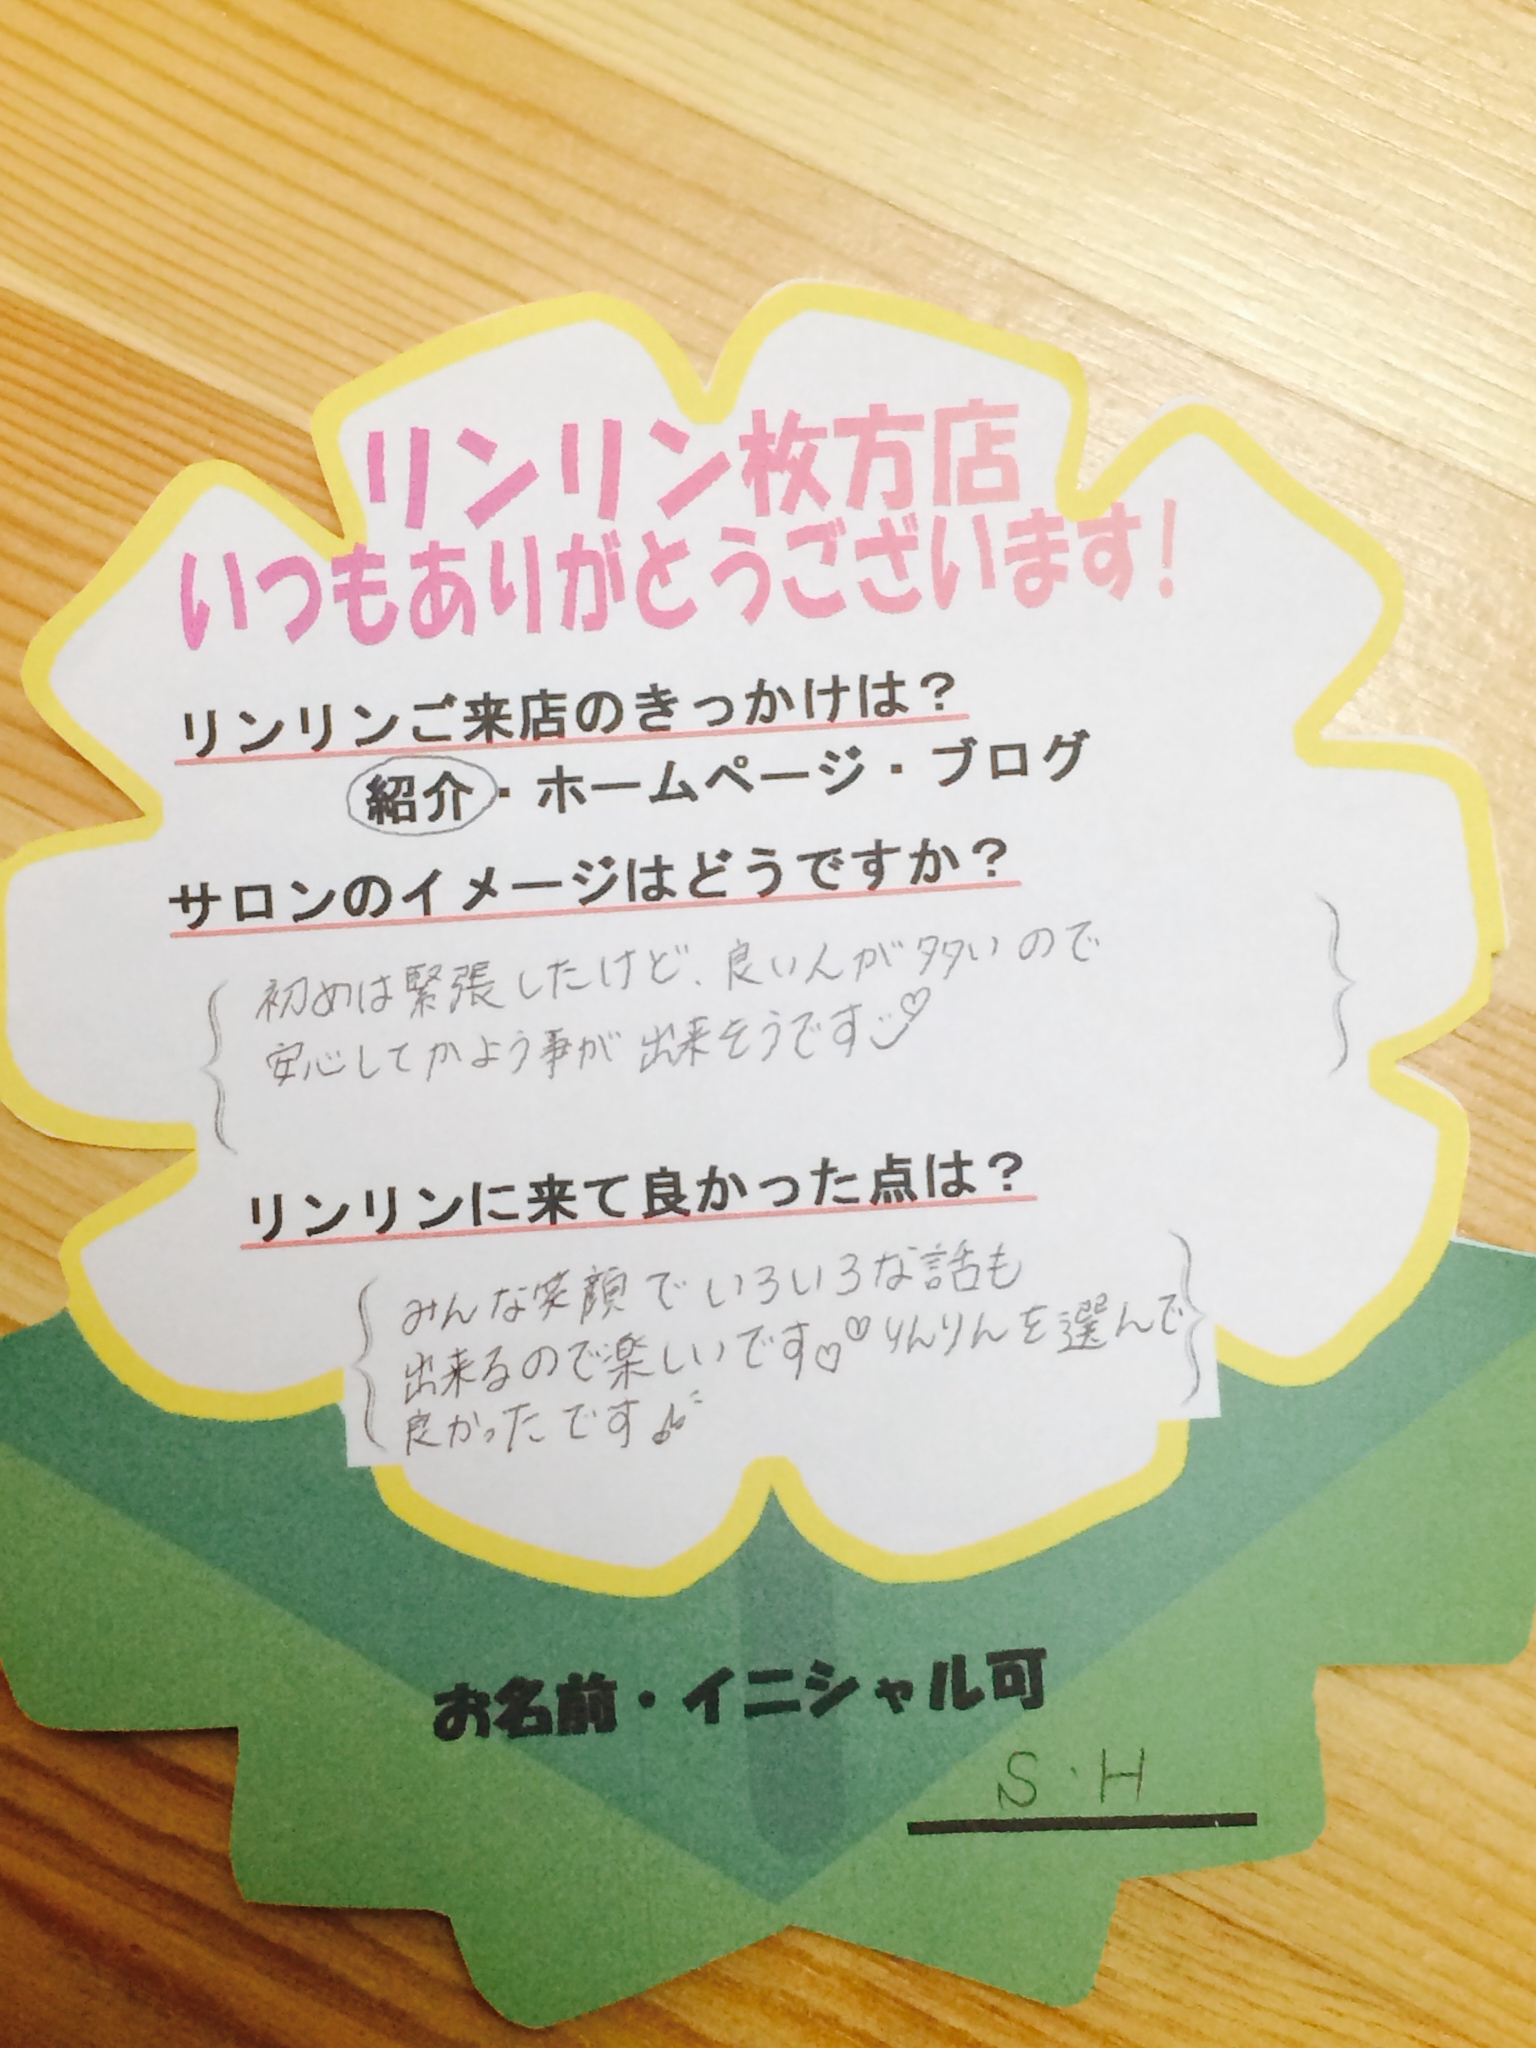 リンリン枚方店
いつもありがとうございます!
リンリンご来店のきっかけは?
紹介・ホームページ・ブログ
サロンのイメージはどうですか?
初めは緊張したけど、良い人が多いので
安心してかよう事が出来そうです
リンリンに来て良かった点は?
みんな笑顔でいろいろな話も
出来るので楽しいです♡♡りんりんを選んで
良かったです♪
お名前・イニシャル可
S・H